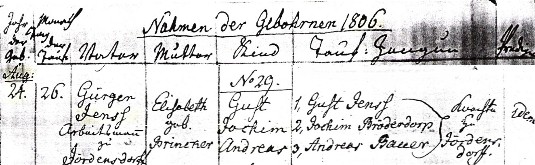 Nahmen der Gebohrnen 1806.
Jahr Monath
der Tag
Geb. der Taufe Vater Mutter Kind Tauf-Zeugen
Aug: No 29.
24. 26. Gürgen Elisabeth Gust 1, Gust Jenss Knechte
Jenss geb. Jochim 2, Jochim Bröderdorp zu
Arbeitsmann Brincker Andreas 3, Andreas Bauer Jördens
zu dorff.
Jördensdorf